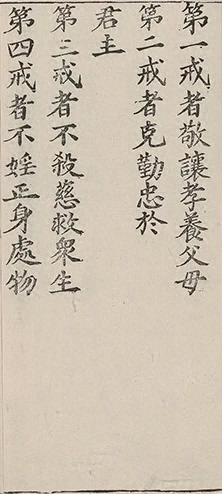 第一戒者敬讓孝養父母
第二戒者克勤忠於
君主
第三戒者不殺慈救衆生
第四戒者不婬正身處物